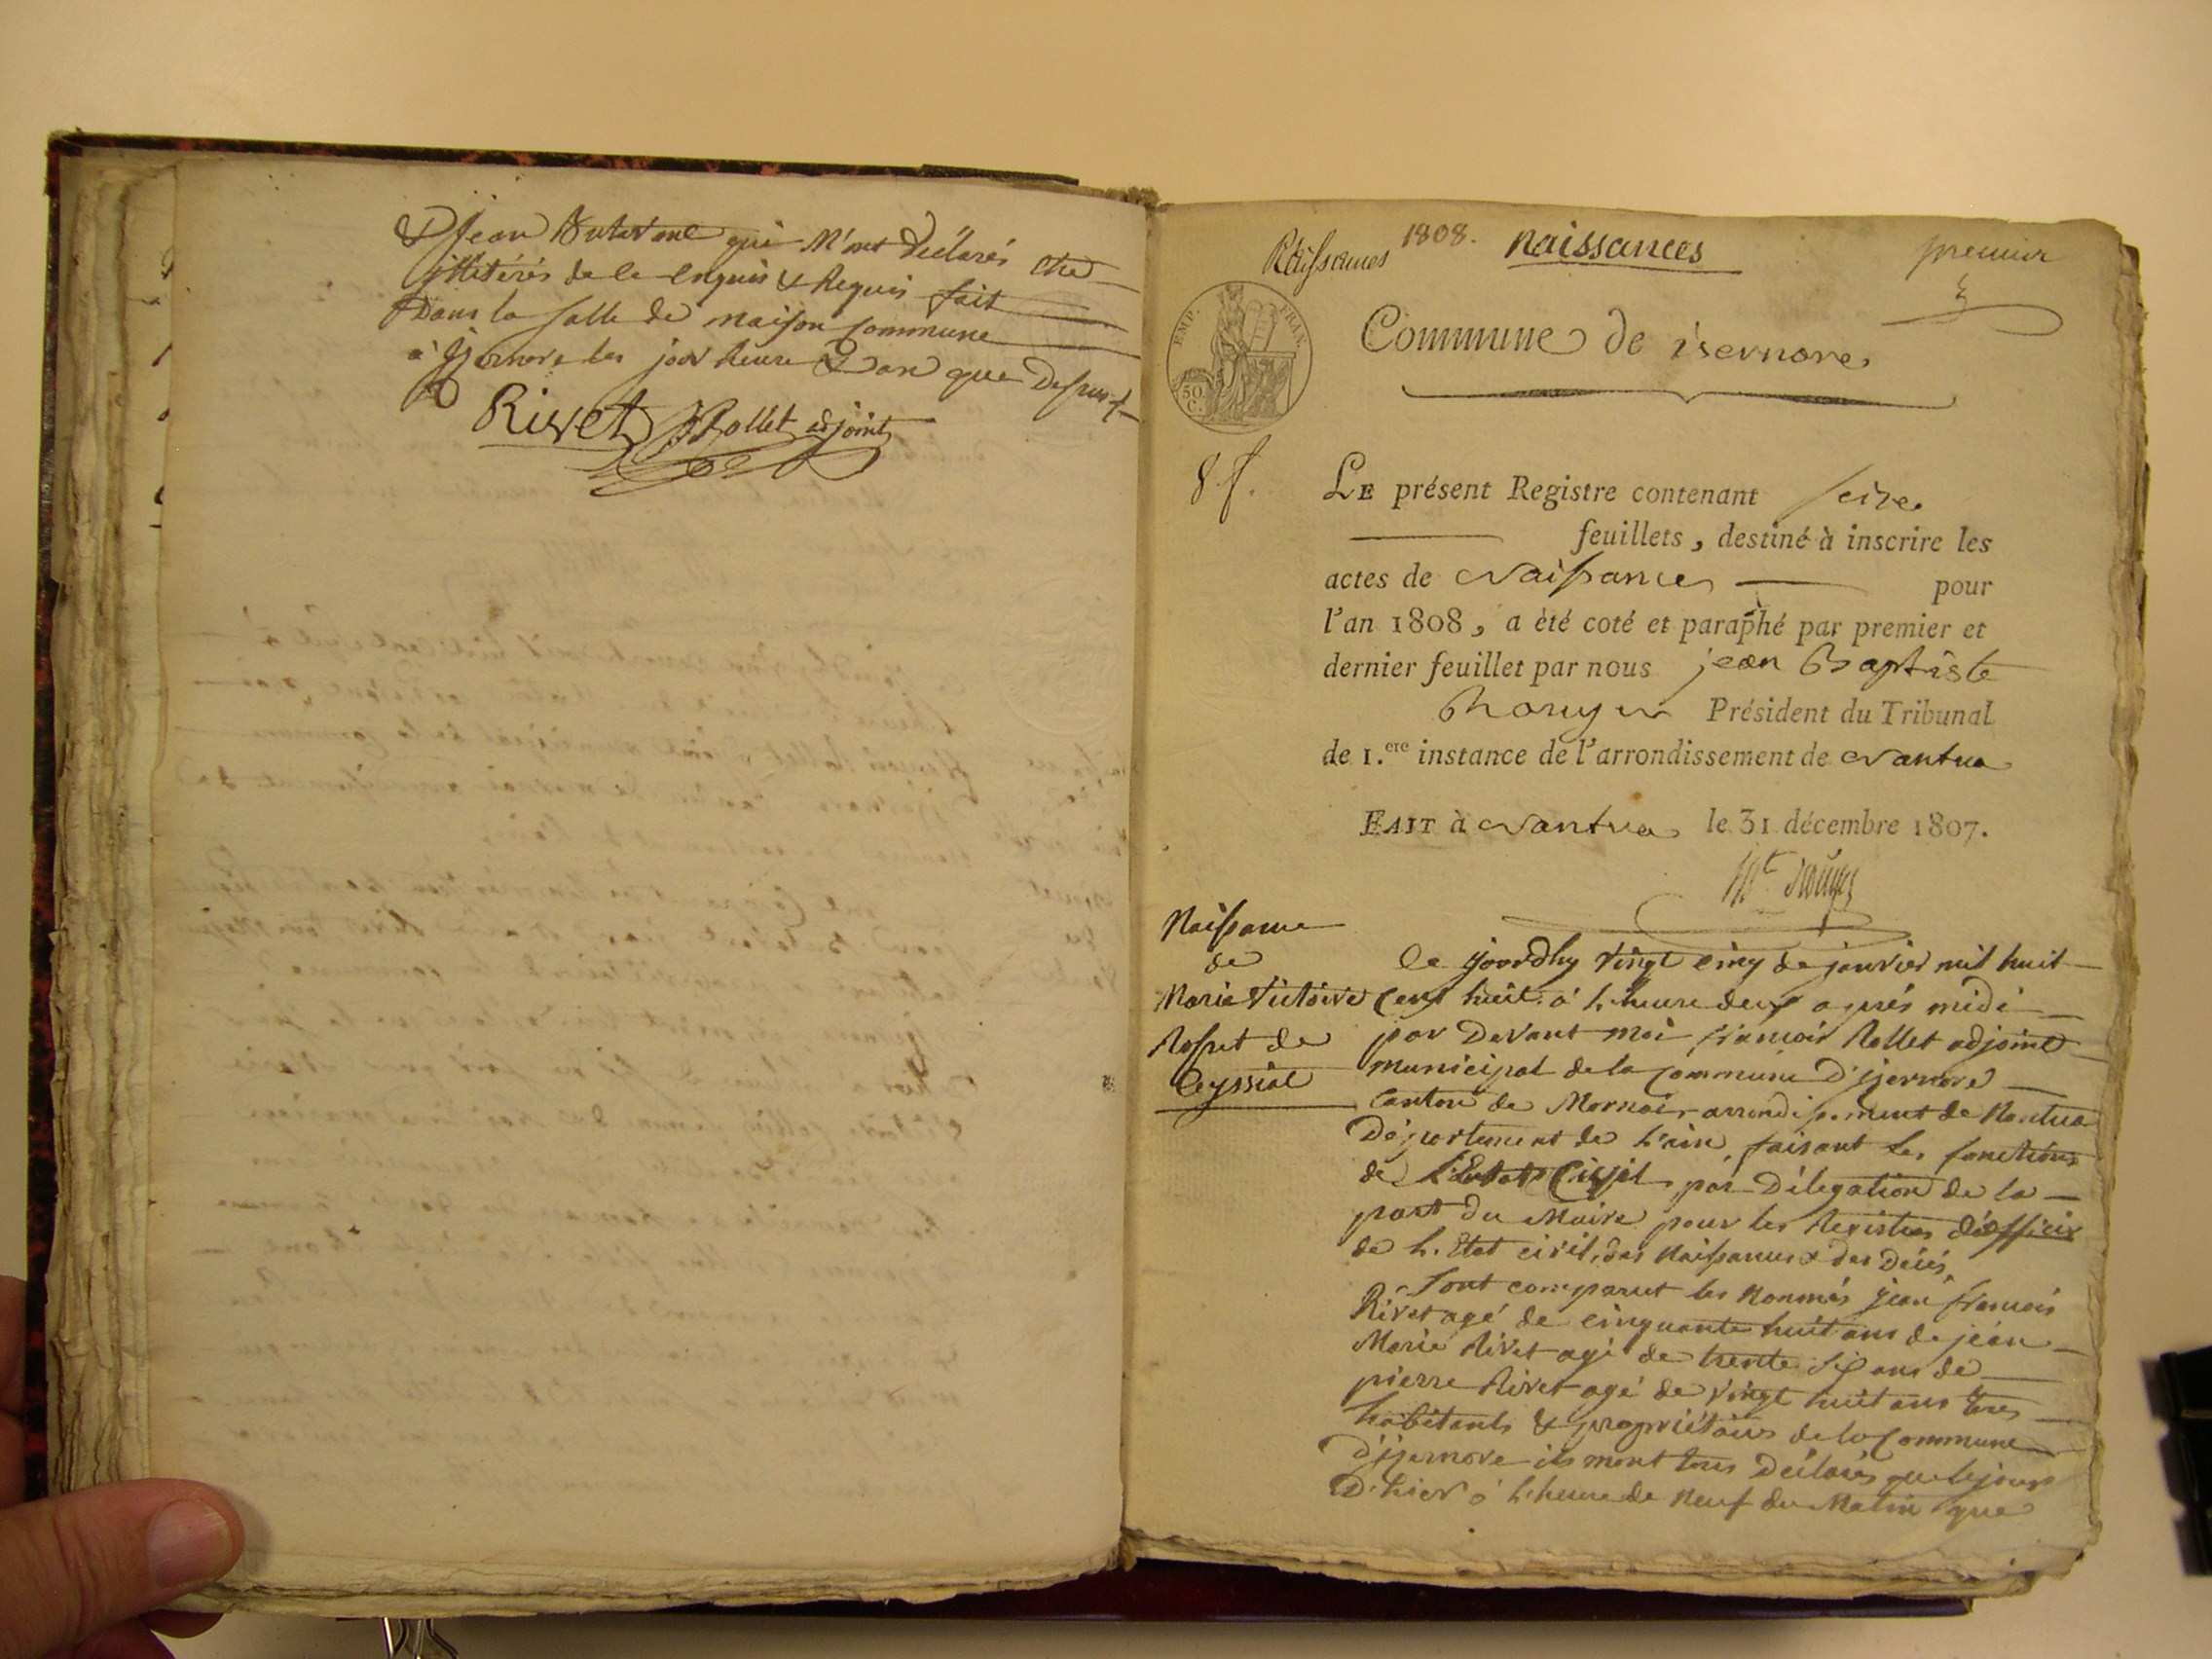 & jean qui M'ont déclarés etre
illiterés de ce enquis & Requis fait
Dans la salle de maison commune
a jsernore les jour heure & an que Dessus
Rivet Rollet adjoint
Naissances 1808. naissances premier
EMP. FRAN.
50 C.
Commune de isernore
8 f.
LE présent Registre contenant seize
feuillets, destiné à inscrire les
actes de Naissances pour
l'an 1808, a été coté et paraphé par premier et
dernier feuillet par nous jean Baptiste
Président du Tribunal
de 1.ere instance de l'arrondissement de Nantua
FAIT à Nantua le 31 décembre 1807.
Naissance
de
Marie Victoire
Rosset de
Ceyssiat
Ce jourdhy vingt cinq de janvier mil huit
cent huit à l'heure deux aprés midi
par Devant moi francois Rollet adjoint
municipal de la commune D'jsernore
Canton de Mornai arrondissement de Nantua
Département de l'ain, faisant les fonctions
de L'Etat Civil par Délegation de la
part du Maire pour les Registres d'officier
de L'Etat civil, des Naissances & des Décés,
Sont comparut les Nommés jean francois
Rivet agé de cinquante huit ans de jean
Marie Rivet agé de trente six ans de
pierre Rivet agé de vingt huit ans tous
habitants & propriétaires de la Commune
D'jsernore ils mont tous Déclarés que le jour
D'hier à l'heure de Neuf du Matin que